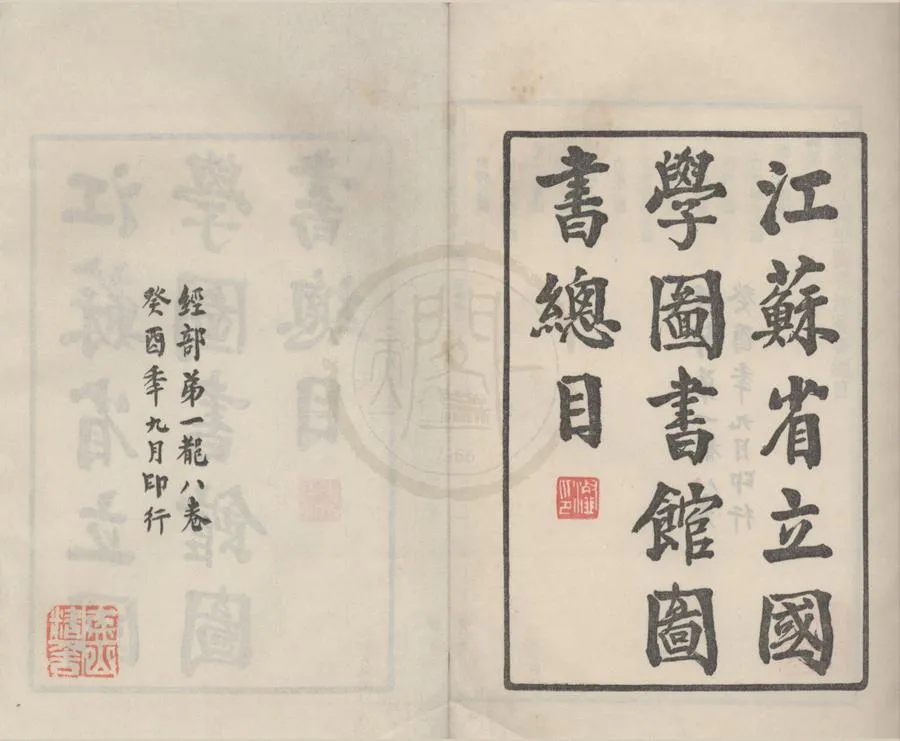 江蘇省立國
學圖書館圖
書總目
經部第一龍八卷
癸酉季九月印行